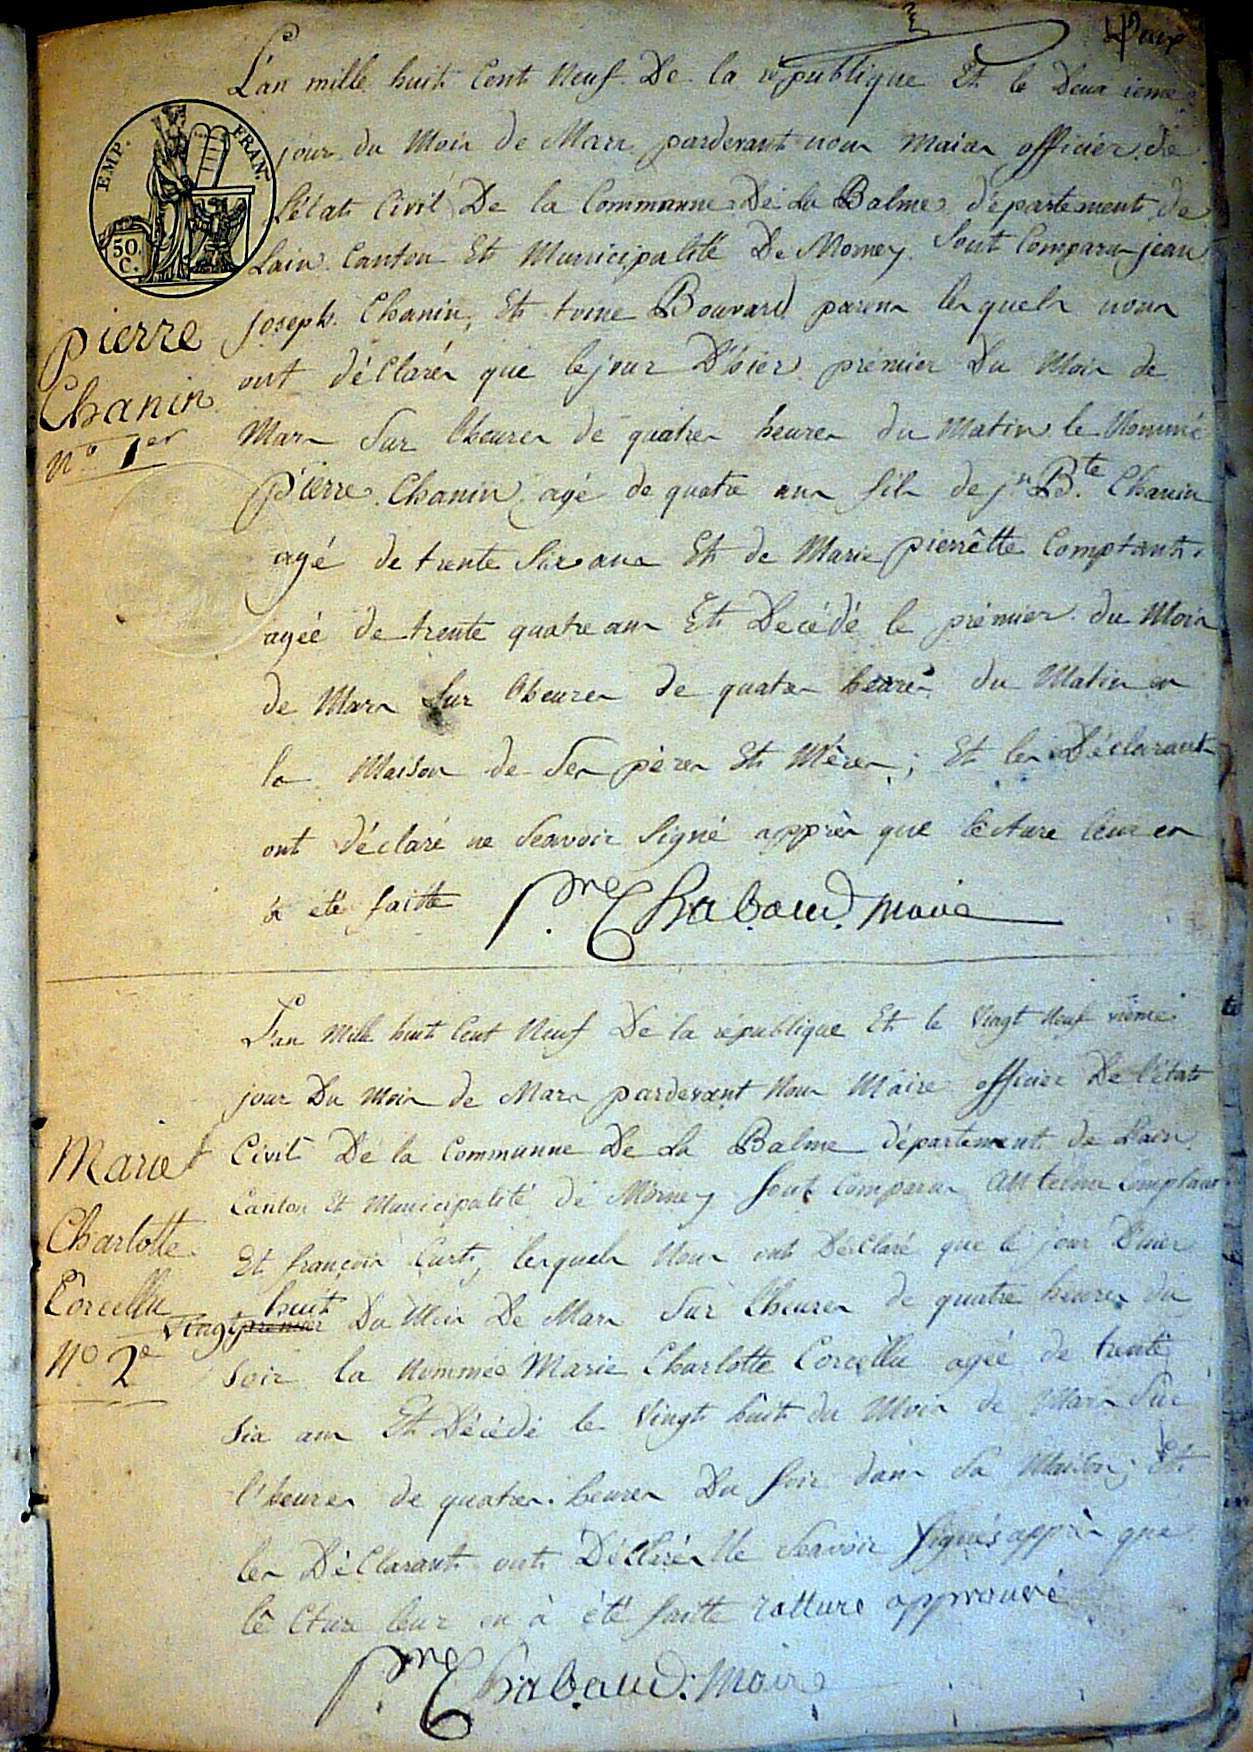 L'an mille huit Cent Neuf De la république Et le Deux ieme
jour du Mois de Mars pardevant nous Maire officier de
L'état Civil De la Commune De La Balme département de
Lain Canton Et Municipalité De Mornay Sont Comparu jean
joseph Chanin, Et toine Bouvard parens lesquels nous
ont déClarés que le jour D'hier prémier Du Mois de
Mars Sur lheures de quatres heures du Matin le Nommé
pierre Chanin agé de quatre ans fils de jn Bte Chanin
agé de trente Six ans Et de Marie pierrêtte Comptant
agée de trente quatre ans Et Décédé le prémier du Mois
de Mars Sur lheures de quatres heures du Matin en
la Maison de Ses pères Et Mères ; Et les Déclarant
ont déclaré ne Seavoir Signé apprès que lecture leur en
à été faitte Pre Chabaud. maire
pierre
Chanin
no 1er
EMP. FRAN.
50 C.
L'an Mille huit Cent Neuf De la république Et le Vingt Neuf vième
jour Du Mois de Mars pardevant Nous Maire officier De l'état
Civil De la Commune De La Balme département de Lain
Canton Et Municipalité de Mornay Sont Comparus Antelme Comptant
Et françois Curt, lesquels Nous ont DéClaré que le jour D'hier
Vingt premier huit Du Mois De Mars Sur Lheures de quatre heures du
Soir la Nommée Marie Charlotte Corcellu agée de trente
Six ans Et Décédé le Vingt huit du Mois de Mars Sur
l'heures de quatres heures Du Soir dans Sa Maison ; Et
les DéClarant ont Déclarés Ne Seavoir Signés apprès que
lêCture leur en à été faitte ratture approuvé
Pre Chabaud. Maire
Marie
Charlotte
Corcellu
No 2e